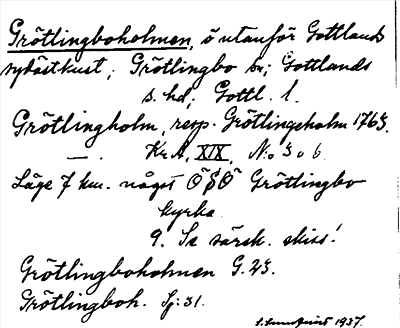 Grötlingboholmen, ö utanför Gottlands
sydöstkust; Grötlingbo sn; Gottlands
s. hd; Gottl. l.
Grötlingholm, resp. Grötlingeholm 1763.
— . Kr.A. XIX, N:o 3 o 6
Läge 7 km. något Ö S Ö Grötlingbo
kyrka
9. Se särsk. skiss!
Grötlingboholmen G. 23.
Grötlingboh. Sj: 31.
1937.